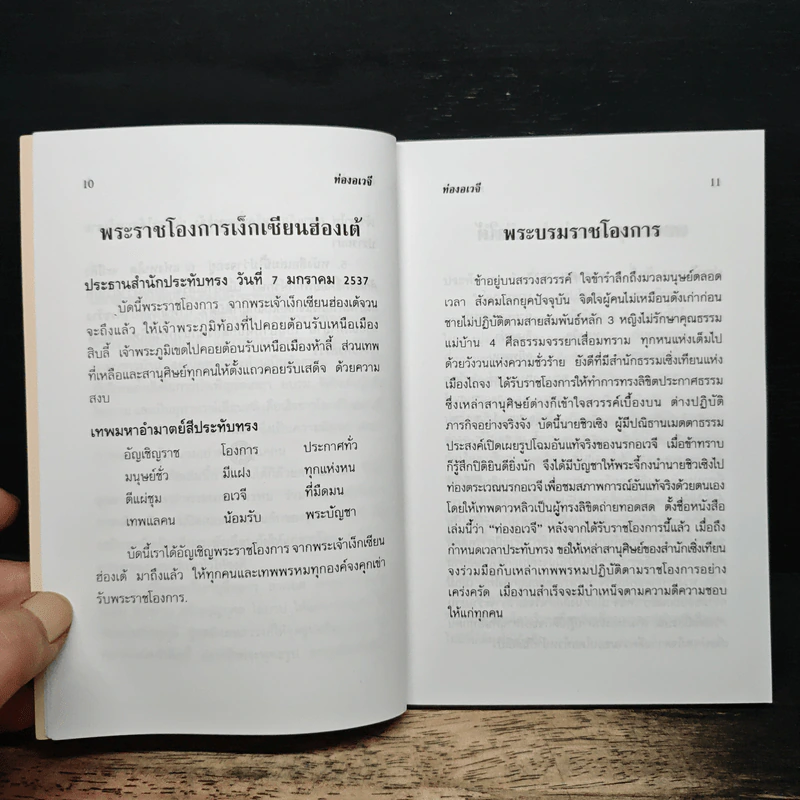 10
ท่องอเวจี
พระราชโองการเง็กเซียนฮ่องเต้
ประธานสำนักประทับทรง วันที่ 7 มกราคม 2537
บัดนี้พระราชโองการ จากพระเจ้าเง็กเซียนฮ่องเต้จวน
จะถึงแล้ว ให้เจ้าพระภูมิท้องที่ไปคอยต้อนรับเหนือเมือง
สิบลี้ เจ้าพระภูมิเขตไปคอยต้อนรับเหนือเมืองห้าลี้ ส่วนเทพ
ที่เหลือและสานุศิษย์ทุกคนให้ตั้งแถวคอยรับเสด็จ ด้วยความ
สงบ
เทพมหาอำมาตย์สีประทับทรง
อัญเชิญราช โองการ ประกาศทั่ว
มนุษย์ชั่ว มีแฝง ทุกแห่งหน
ตีแผ่ชุม อเวจี ที่มืดมน
เทพแลคน น้อมรับ พระบัญชา
บัดนี้เราได้อัญเชิญพระราชโองการ จากพระเจ้าเง็กเซียน
ฮ่องเต้ มาถึงแล้ว ให้ทุกคนและเทพพรหมทุกองค์จงคุกเข่า
รับพระราชโองการ.
ท่องอเวจี
11
พระบรมราชโองการ
ข้าอยู่บนสรวงสวรรค์ ใจข้ารำลึกถึงมวลมนุษย์ตลอด
เวลา สังคมโลกยุคปัจจุบัน จิตใจผู้คนไม่เหมือนดังเก่าก่อน
ชายไม่ปฏิบัติตามสายสัมพันธ์หลัก 3 หญิงไม่รักษาคุณธรรม
แม่บ้าน 4 ศีลธรรมจรรยาเสื่อมทราม ทุกหนแห่งเต็มไป
ด้วยวังวนแห่งความชั่วร้าย ยังดีที่มีสำนักธรรมเซิ่งเทียนแห่ง
เมืองไถจง ได้รับราชโองการให้ทำการทรงลิขิตประกาศธรรม
ซึ่งเหล่าสานุศิษย์ต่างก็เข้าใจสวรรค์เบื้องบน ต่างปฏิบัติ
ภารกิจอย่างจริงจัง บัดนี้นายชิวเซิง ผู้มีปณิธานเมตตาธรรม
ประสงค์เปิดเผยรูปโฉมอันแท้จริงของนรกอเวจี เมื่อข้าทราบ
ก็รู้สึกปิติยินดียิ่งนัก จึงได้มีบัญชาให้พระจี้กงนำนายชิวเซิงไป
ท่องตระเวณนรกอเวจี เพื่อชมสภาพการณ์อันแท้จริงด้วยตนเอง
โดยให้เทพดาวหลิวเป็นผู้ทรงลิขิตถ่ายทอดสด ตั้งชื่อหนังสือ
เล่มนี้ว่า “ท่องอเวจี” หลังจากได้รับราชโองการนี้แล้ว เมื่อถึง
กำหนดเวลาประทับทรง ขอให้เหล่าสานุศิษย์ของสำนักเซิ่งเทียน
จงร่วมมือกับเหล่าเทพพรหมปฏิบัติตามราชโองการอย่าง
เคร่งครัด เมื่องานสำเร็จจะมีบำเหน็จตามความดีความชอบ
ให้แก่ทุกคน